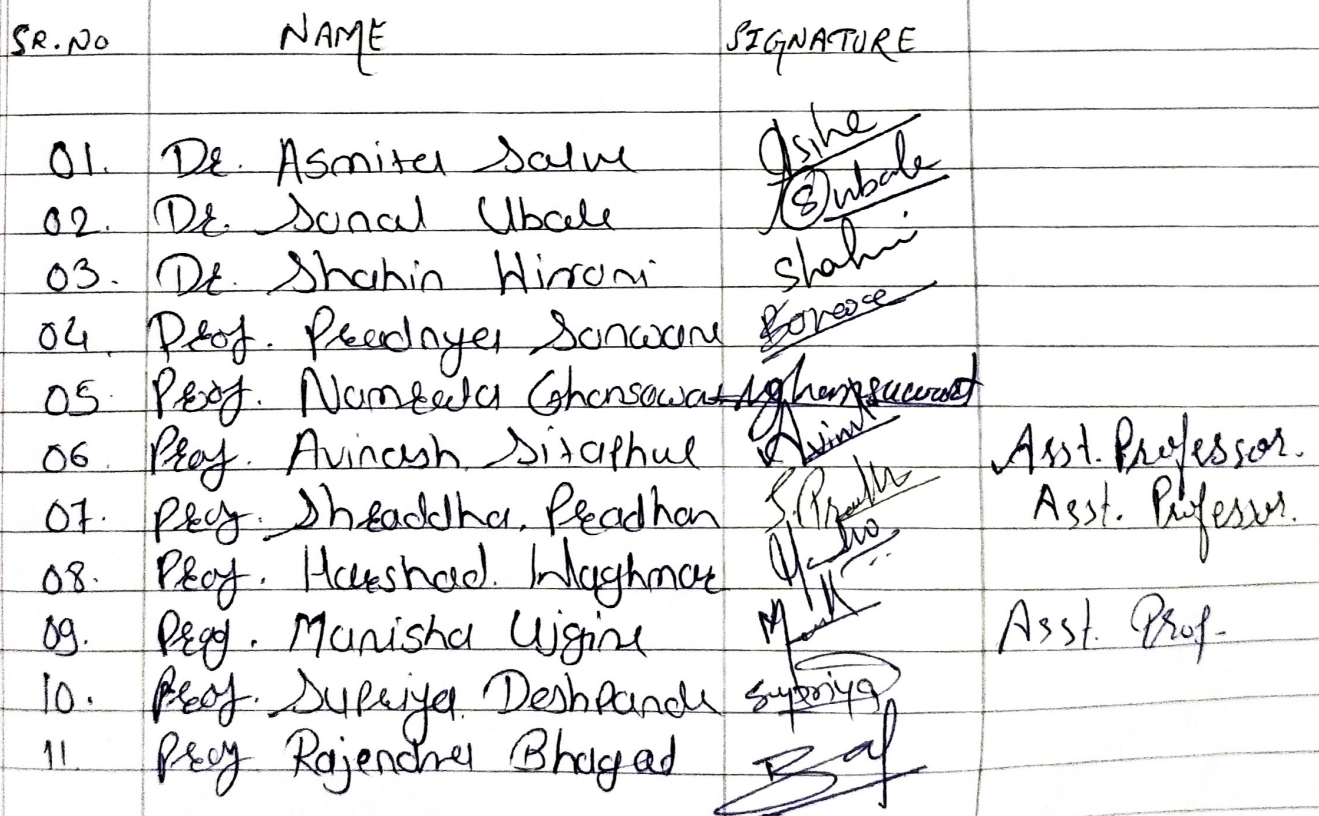 SR.NO NAME SIGNATURE
01. Dr. Asmita Salve
02. Dr. Sonal Ubale Subale
03. Dr. Shahin Hirani Shahin
04. Prof. Pradnya Sonwane
05. Prof. Namrata Ghansawat Nghansawat
06. Prof. Avinash Sitaphule Avinash Asst. Professor.
07. Prof. Shraddha. Pradhan Asst. Professor.
08. Prof. Harshad. Waghmare
09. Prof. Manisha Asst. Prof.
10. Prof. Supriya Deshpande Supriya
11. Prof Rajendra Bhagad